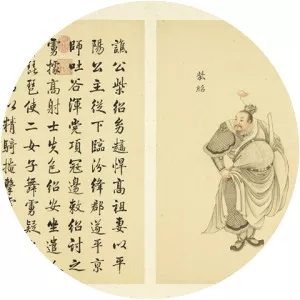 譙公柴紹幼趫悍高祖妻以平
陽公主從下臨汾絳郡遂平京
師吐谷渾党項冦邊敕紹討之
虜據高射士失色紹安坐遣
琵琶使二女子舞虜疑
以精騎掩擊
柴紹